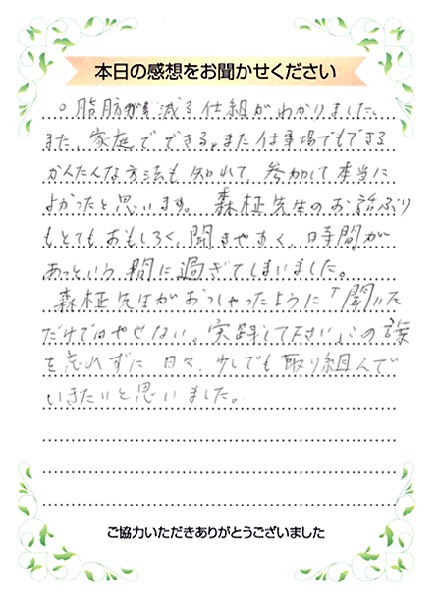 本日の感想をお聞かせください
○脂肪が減る仕組がわかりました。
また、家庭でできる、また仕事場でもできる
かんたんな方法も知れて、参加して本当に
よかったと思います。森柾先生のお話ぶり
もとてもおもしろく、聞きやすく、時間が
あっという間に過ぎてしまいました。
森柾先生がおっしゃったように「聞いた
だけではやせない。実践して下さい」この言葉
を忘れずに日々、少しでも取り組んで
いきたいと思いました。
ご協力いただきありがとうございました